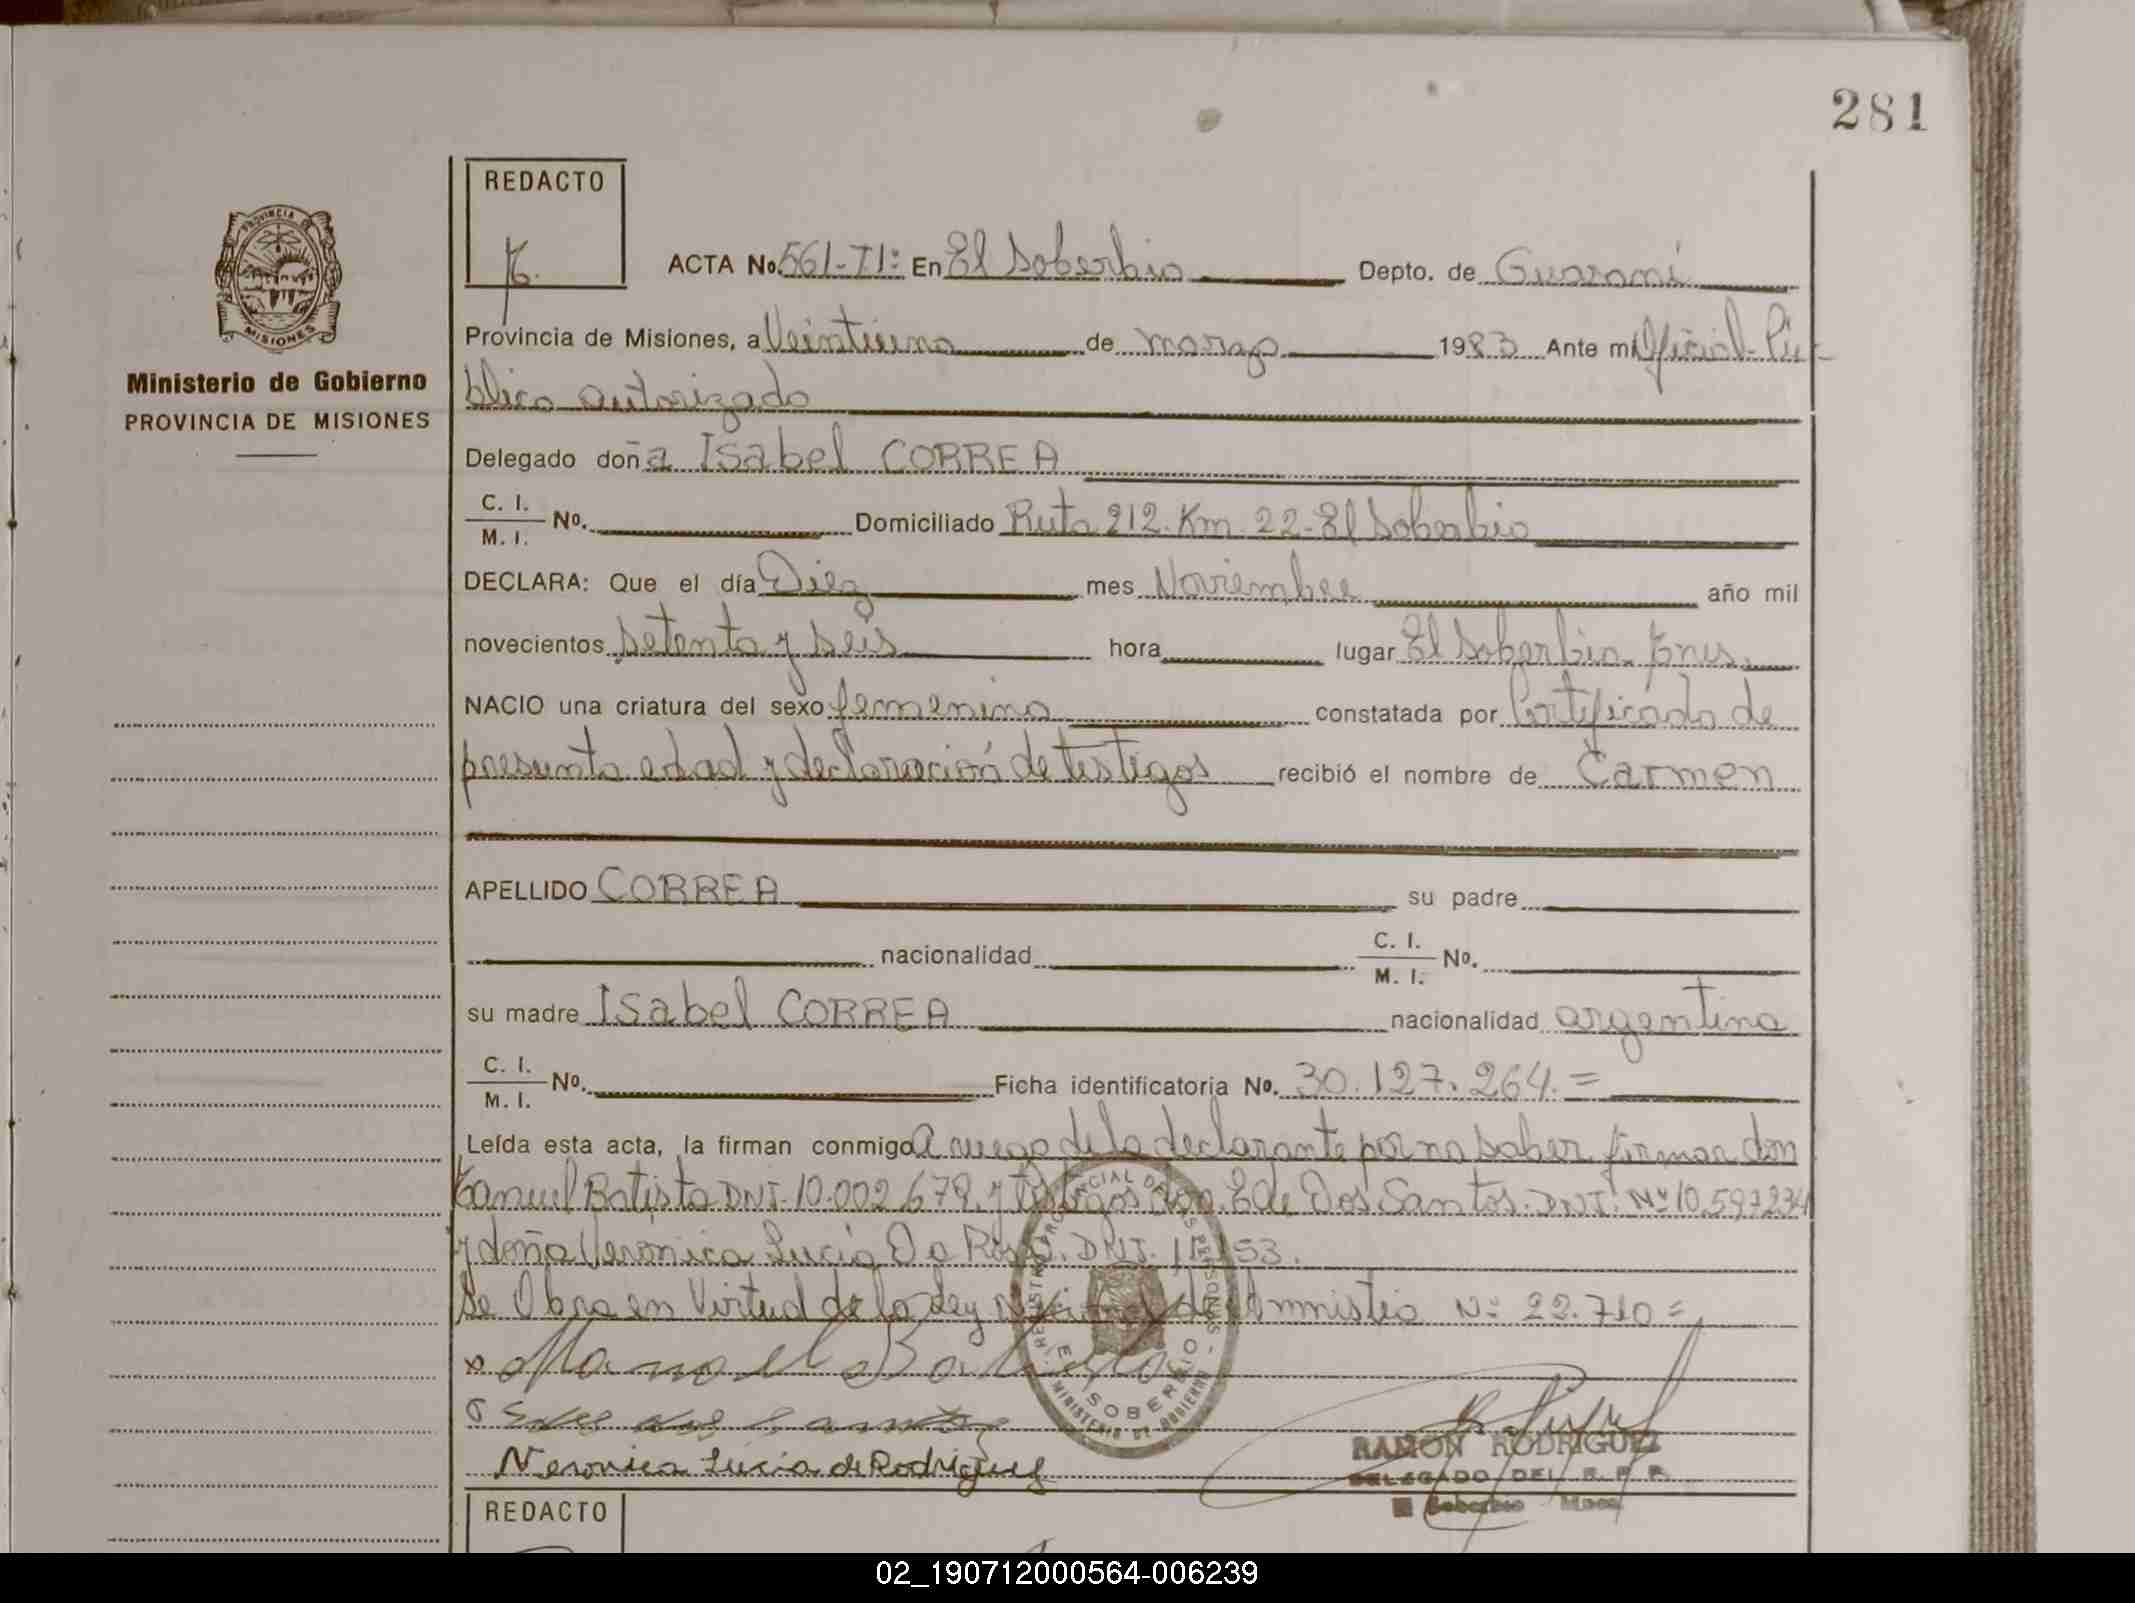 281
REDACTO
ACTA No. 561-TI: En El Soberbio Depto. de Guaraní
Provincia de Misiones, a Veintiuno de marzo 1983 Ante mi Oficial Pú-
blico autorizado
Ministerio de Gobierno
PROVINCIA DE MISIONES
MISIONES
Delegado doña Isabel CORREA
C. I.
M. I. No. Domiciliado Ruta 212. Km. 22-El Soberbio
DECLARA: Que el día Diez mes Noviembre año mil
novecientos setenta y seis hora lugar El Soberbio
NACIO una criatura del sexo femenino constatada por Certificado de
presunta edad y declaración de testigos recibió el nombre de Carmen
APELLIDO CORREA su padre
nacionalidad C. I.
M. I. No.
su madre Isabel CORREA nacionalidad argentina
C. I.
M. I. No. Ficha identificatoria No. 30.127.264.=
Leída esta acta, la firman conmigo A ruego de la declarante por no saber firmar don
Manuel Batista DNI. 10.002.679. y testigos don Ede Dos Santos. DNI. Nº 10.597234
y doña Verónica Lucia Da Rosa. DNI.
Se Obra en Virtud de la Ley Nacional de Amnistia Nº 22.710=
Manoel Batista
Ede dos Santos
Veronica Lucia de Rodriguez
EL SOBERBIO
MINISTERIO DE GOBIERNO
RAMON RODRIGUEZ
DELEGADO DEL R. P. P.
El Soberbio Mnes
REDACTO
02_190712000564-006239